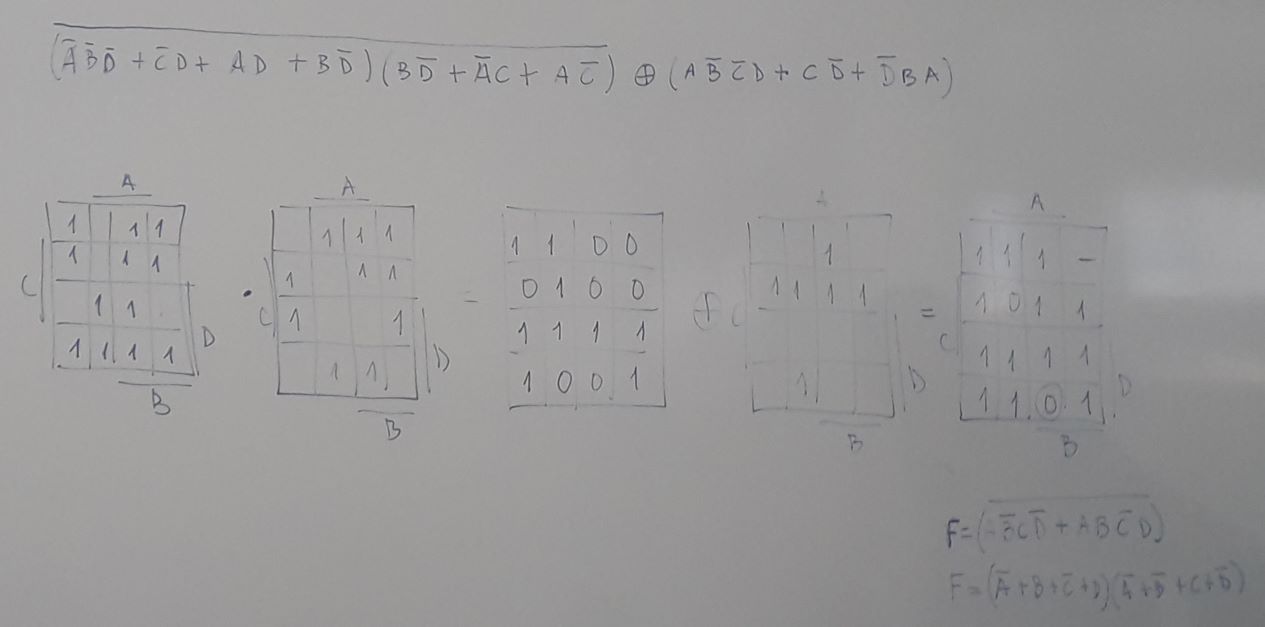 (A̅B̅D̅ + C̅D + AD + BD̅)(BD̅ + A̅C + AC̅) ⊕ (AB̅C̅D + CD̅ + D̅BA)
A A A A
1 1 1
1 1 1
1 1
1 1 1 1
C D B
·
1 1 1
1 1 1
1 1
1 1
C D B
=
1 1 0 0
0 1 0 0
1 1 1 1
1 0 0 1
⊕
1
1 1 1 1
1
C D B
=
1 1 1 –
1 0 1 1
1 1 1 1
1 1 0 1
C D B
F = (B̅CD̅ + ABC̅D)
F = (A̅+B+C̅+D)(A̅+B̅+C+D̅)